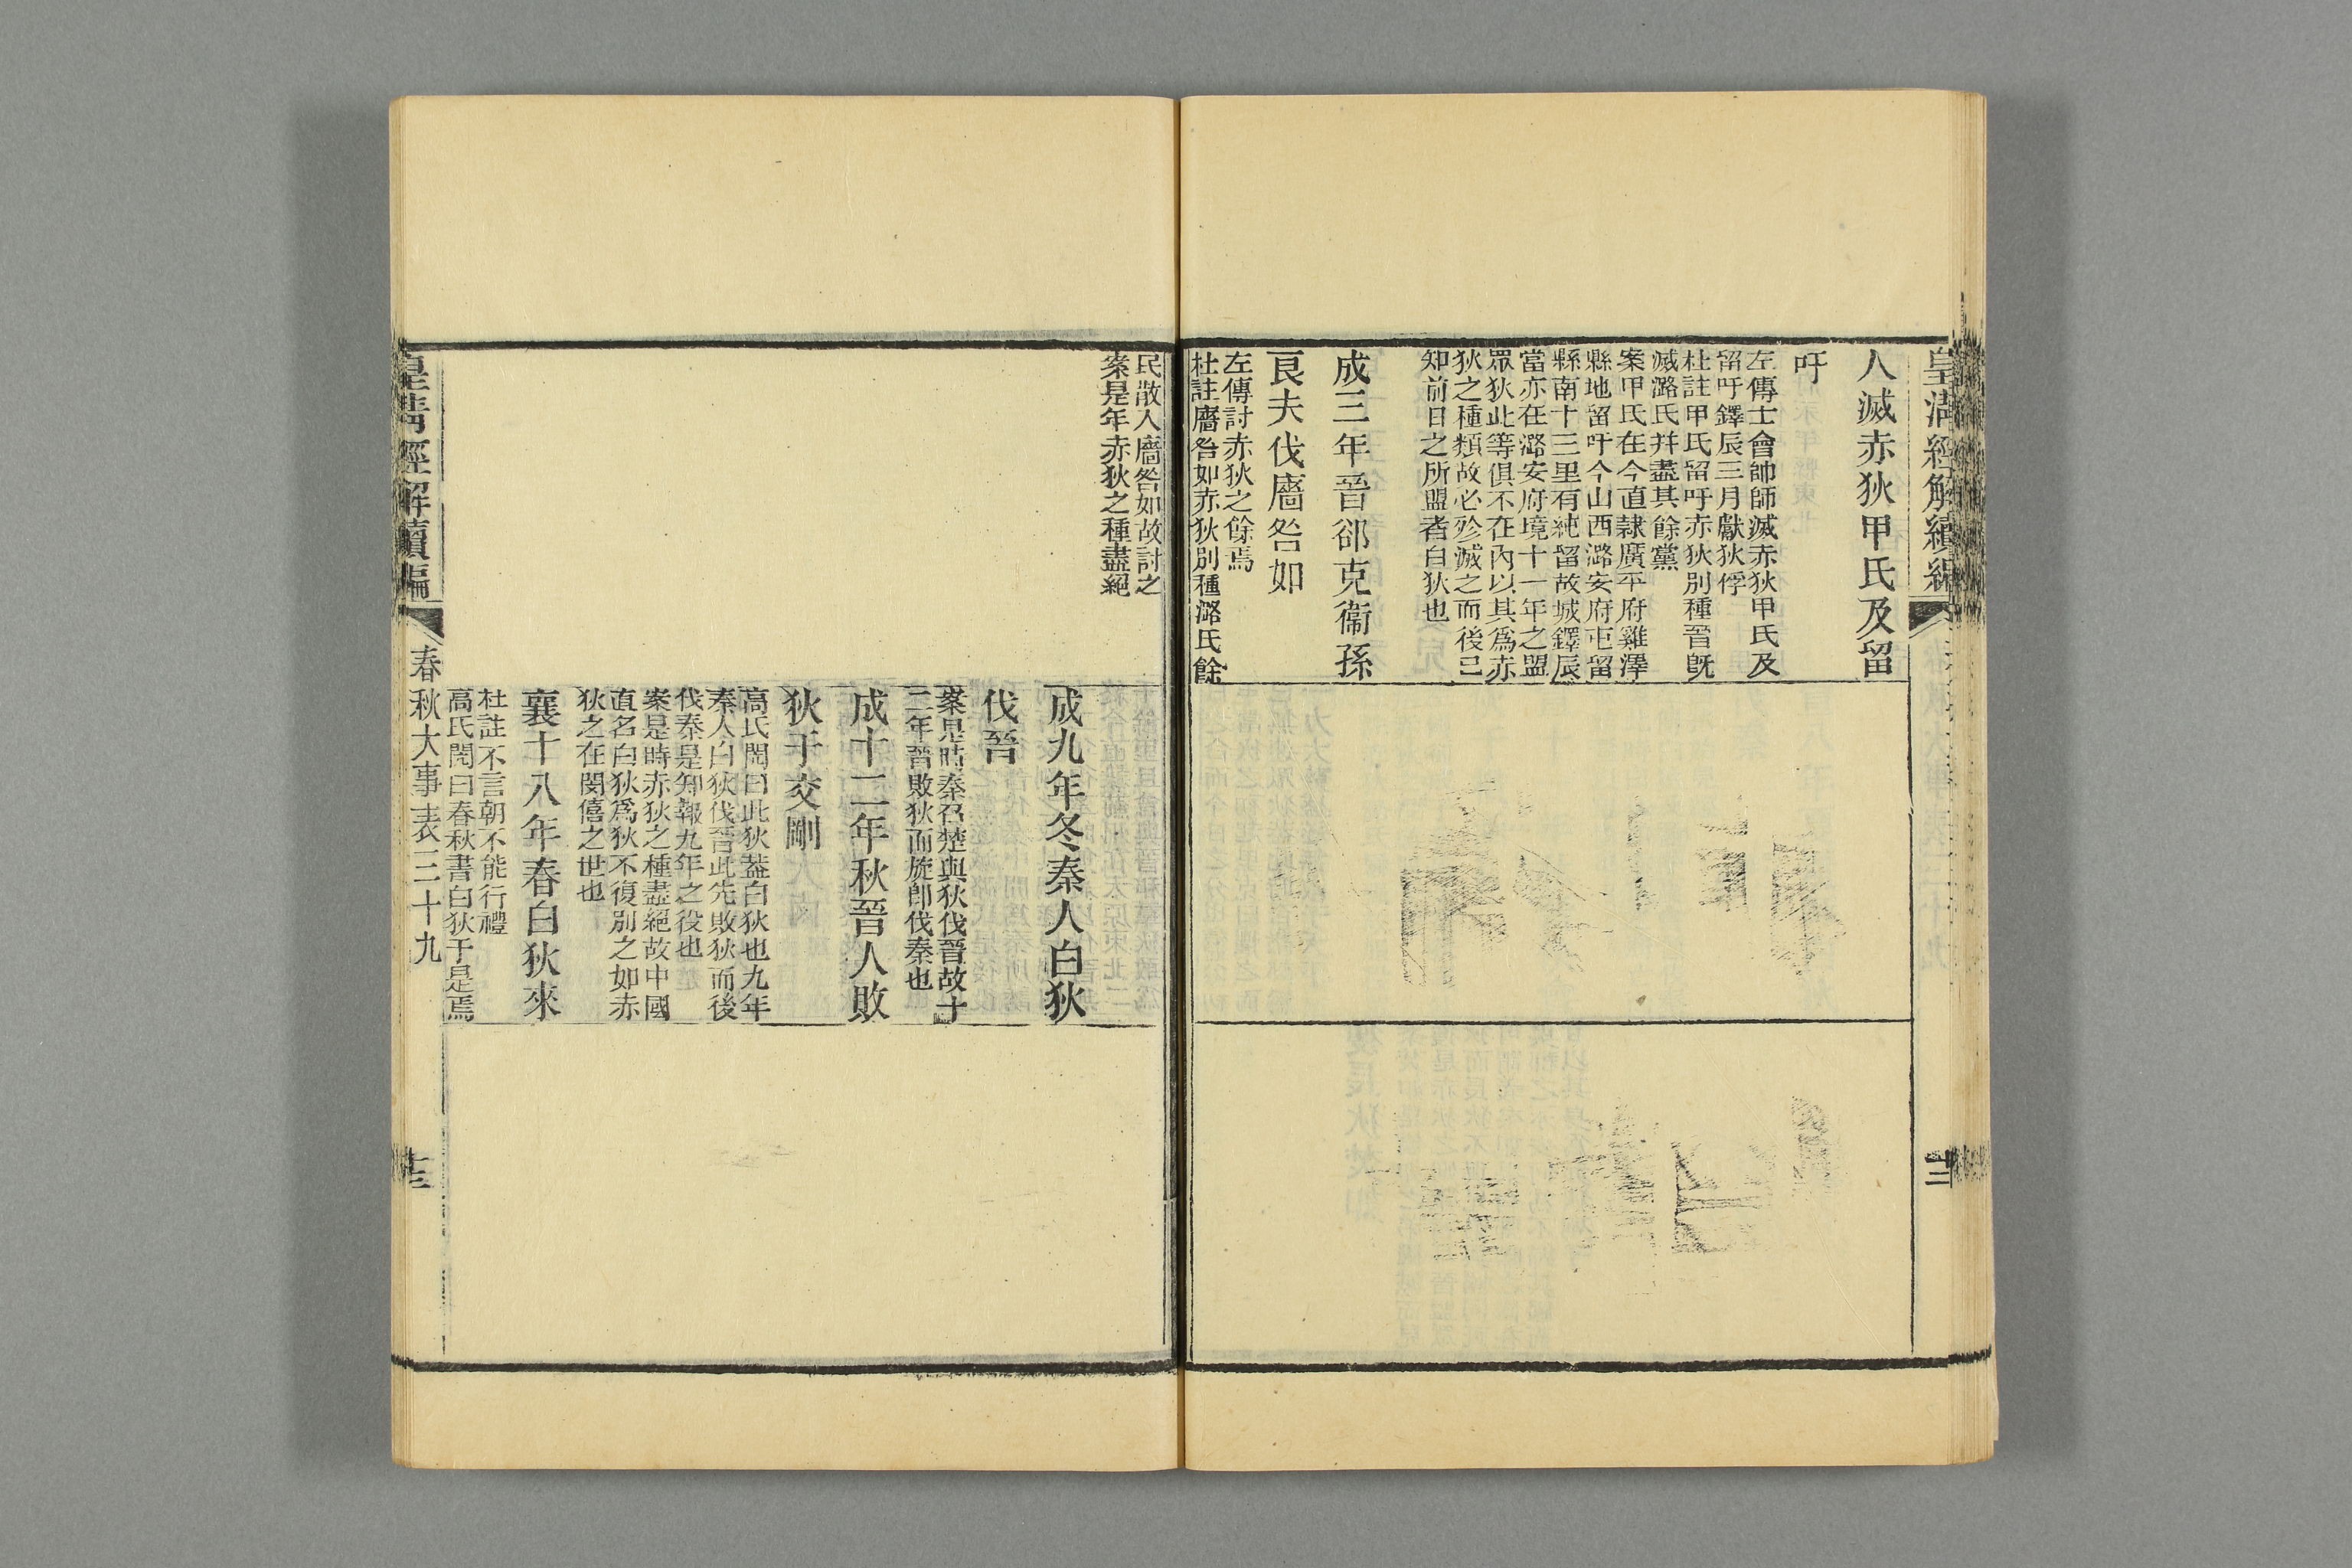 皇清經解續編
人滅赤狄甲氏及留
吁
左傳士會帥師滅赤狄甲氏及
留吁鐸辰三月獻狄俘
杜註甲氏留吁赤狄別種晉旣
滅潞氏幷盡其餘黨
案甲氏在今直隸廣平府雞澤
縣地留吁今山西潞安府屯留
縣南十三里有純留故城鐸辰
當亦在潞安府境十一年之盟
眾狄此等俱不在內以其爲赤
狄之種類故必殄滅之而後已
知前日之所盟者白狄也
成三年晉郤克衞孫
良夫伐廧咎如
左傳討赤狄之餘焉
杜註廧咎如赤狄別種潞氏餘
民散入廧咎如故討之
案是年赤狄之種盡絕
成九年冬秦人白狄
伐晉
案是時秦召楚與狄伐晉故十
二年晉敗狄而旋卽伐秦也
成十二年秋晉人敗
狄于交剛
高氏閌曰此狄葢白狄也九年
秦人白狄伐晉此先敗狄而後
伐秦是知報九年之役也
案是時赤狄之種盡絕故中國
直名白狄爲狄不復別之如赤
狄之在閔僖之世也
襄十八年春白狄來
杜註不言朝不能行禮
高氏閌曰春秋書白狄于是焉
皇清經解續編
春秋大事表三十九
十三